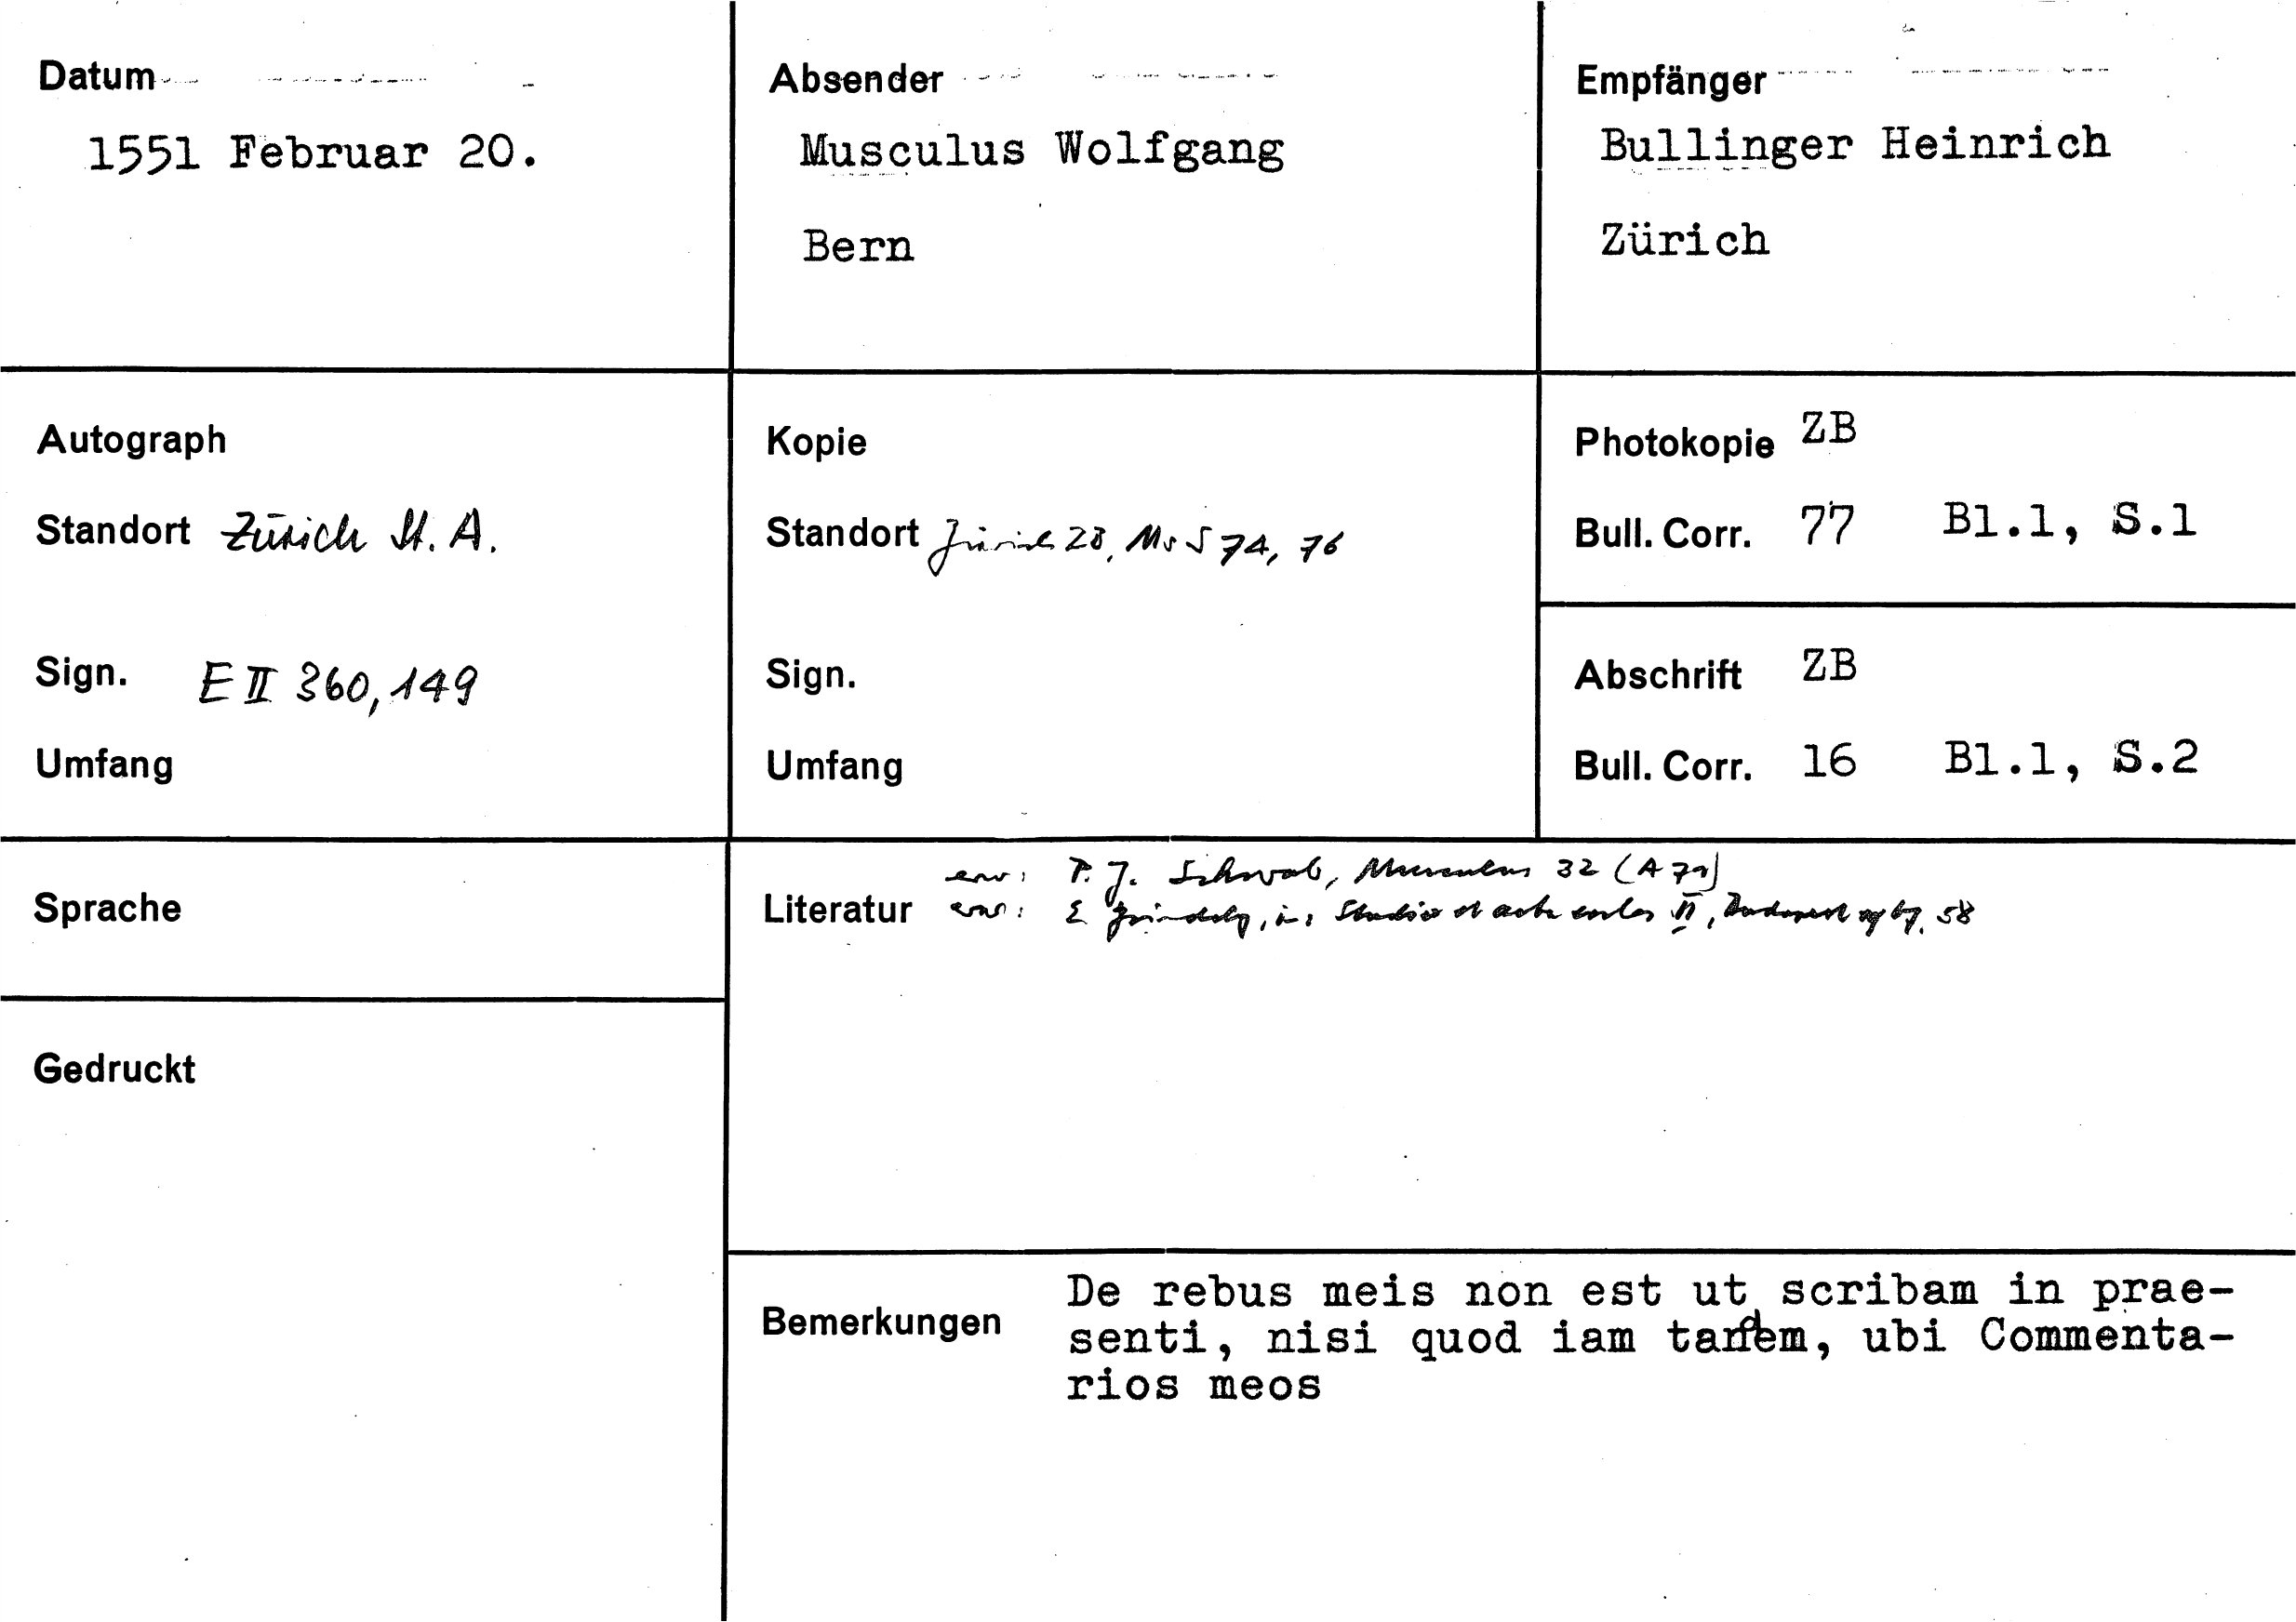 Datum
1551 Februar 20.
Absender
Musculus Wolfgang
Bern
Empfänger
Bullinger Heinrich
Zürich
Autograph
Standort Zürich St. A.
Sign. E II 360, 149
Umfang
Kopie
Standort Zürich ZB, Ms S 74, 76
Sign.
Umfang
Photokopie ZB
Bull. Corr. 77 Bl.1, S.1
Abschrift ZB
Bull. Corr. 16 Bl.1, S.2
Sprache
Gedruckt
erw: P. J. Schwab, Musculus 32 (A 79)
Literatur erw: E Zsindely, in: Studia et acta eccles II, Budapest 58
Bemerkungen
De rebus meis non est ut scribam in prae-
senti, nisi quod iam tandem, ubi Commenta-
rios meos